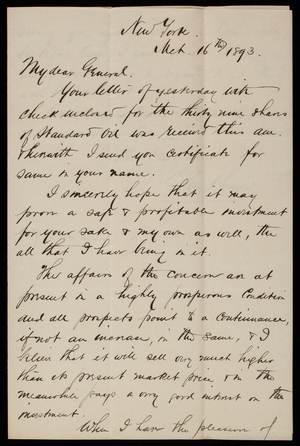 New York.
Mch. 16th, 1893.
My dear General.
Your letter of yesterday with
check inclosed for the thirty nine shares
of Standard Oil was received this am.
& herewith I send you certificate for
same in your name.
I sincerely hope that it may
prove a safe & profitable investment
for your sake & my own as well, the
all that I have being in it.
The affairs of the concern are at
present in a highly prosperous condition
and all prospects point to a continuance,
if not an increase, in the same, & I
believe that it will sell very much higher
than its present market price, & in the
meanwhile pays a very good interest on the
investment.
When I have the pleasure of